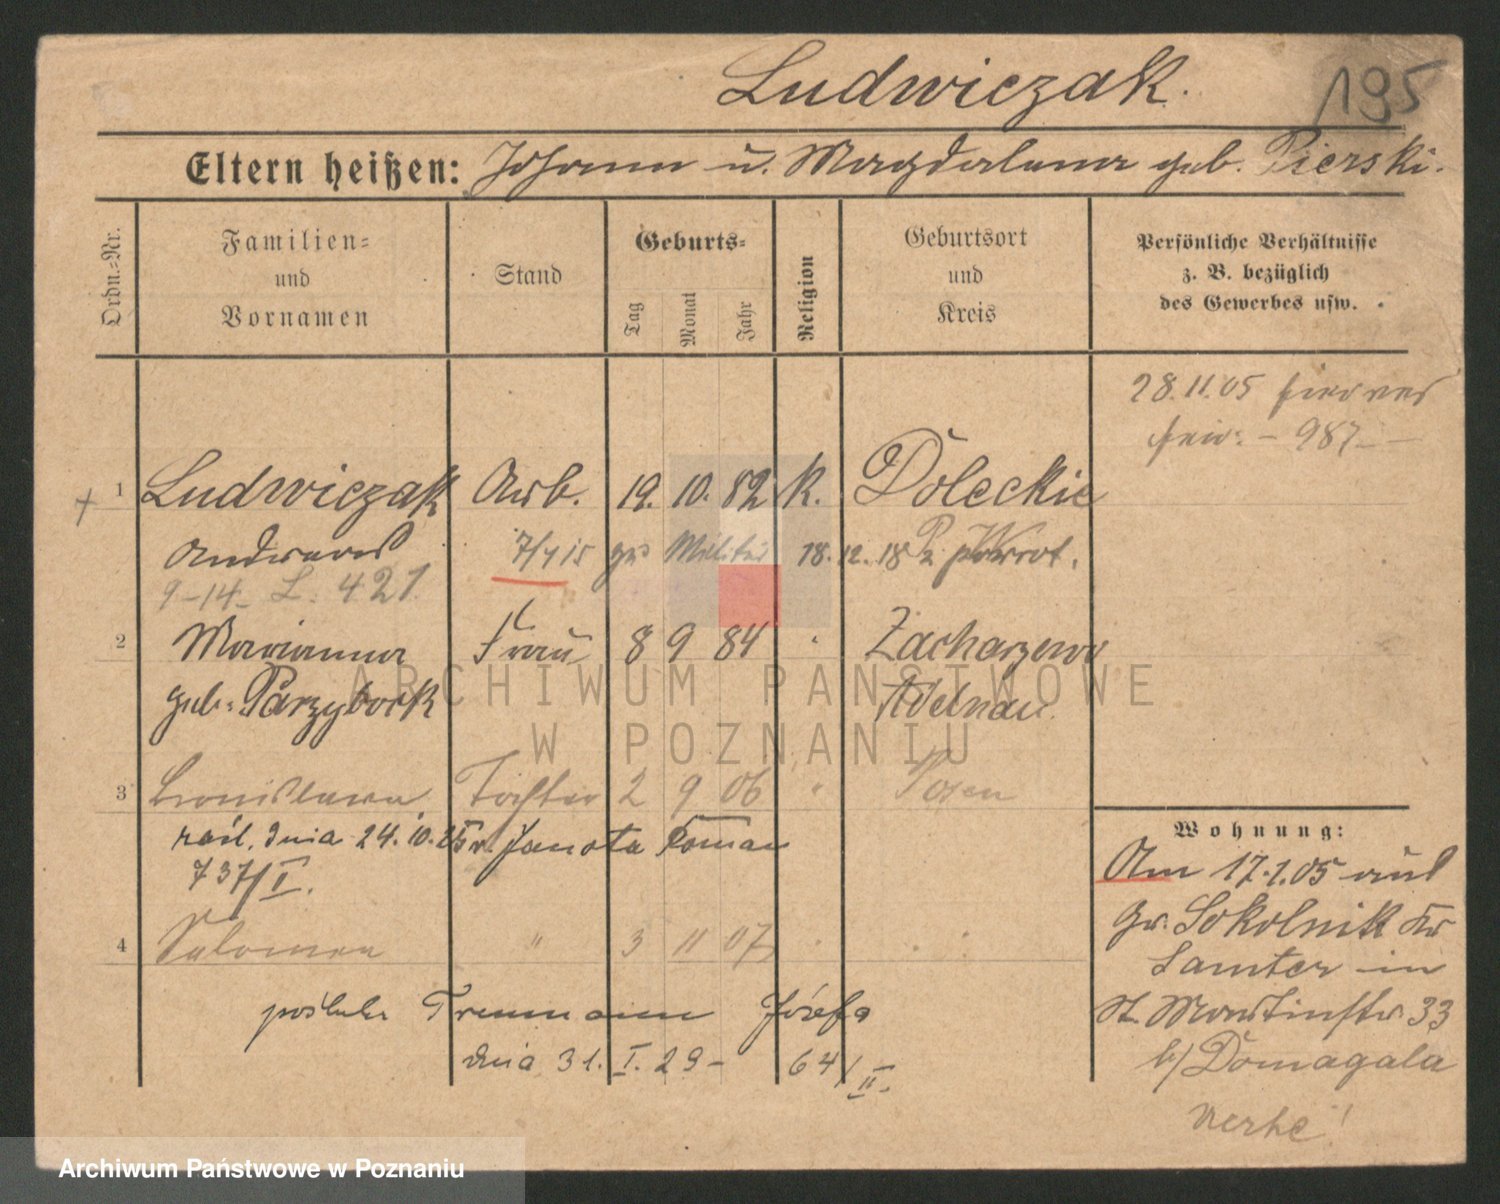 Ludwiczak.
195
Eltern heißen: Johann u. Magdalena geb. Pierski.
Ordn.-Nr.
Familien- und Vornamen
Stand
Geburts-
Tag
Monat
Jahr
Religion
Geburtsort und Kreis
Persönliche Verhältnisse z. B. bezüglich des Gewerbes usw.
28.11.05
987
1 Ludwiczak Arb. 19. 10. 82 K. Doleckie
Andreas 7/4 15 zus Militär 18.12.18
9-14- L. 421
2 Marianna Frau 8 9 84 " Zacharzewo
geb. Parzybork Adelnau
3 Bronislawa Tochter 2 9 06 " Posen
zaśl. dnia 24.10.25 r. Janota Roman
737/II.
4 Salomea " 3 11 07 " "
poślubi Treumann Józefa
dnia 31. I. 29- 64/II.
Wohnung:
Am 17.1.05 aus
Gr. Sokolnik Kr
Samter in
St Martinstr. 33
b/ Domagala
ARCHIWUM PAŃSTWOWE
W POZNANIU
Archiwum Państwowe w Poznaniu